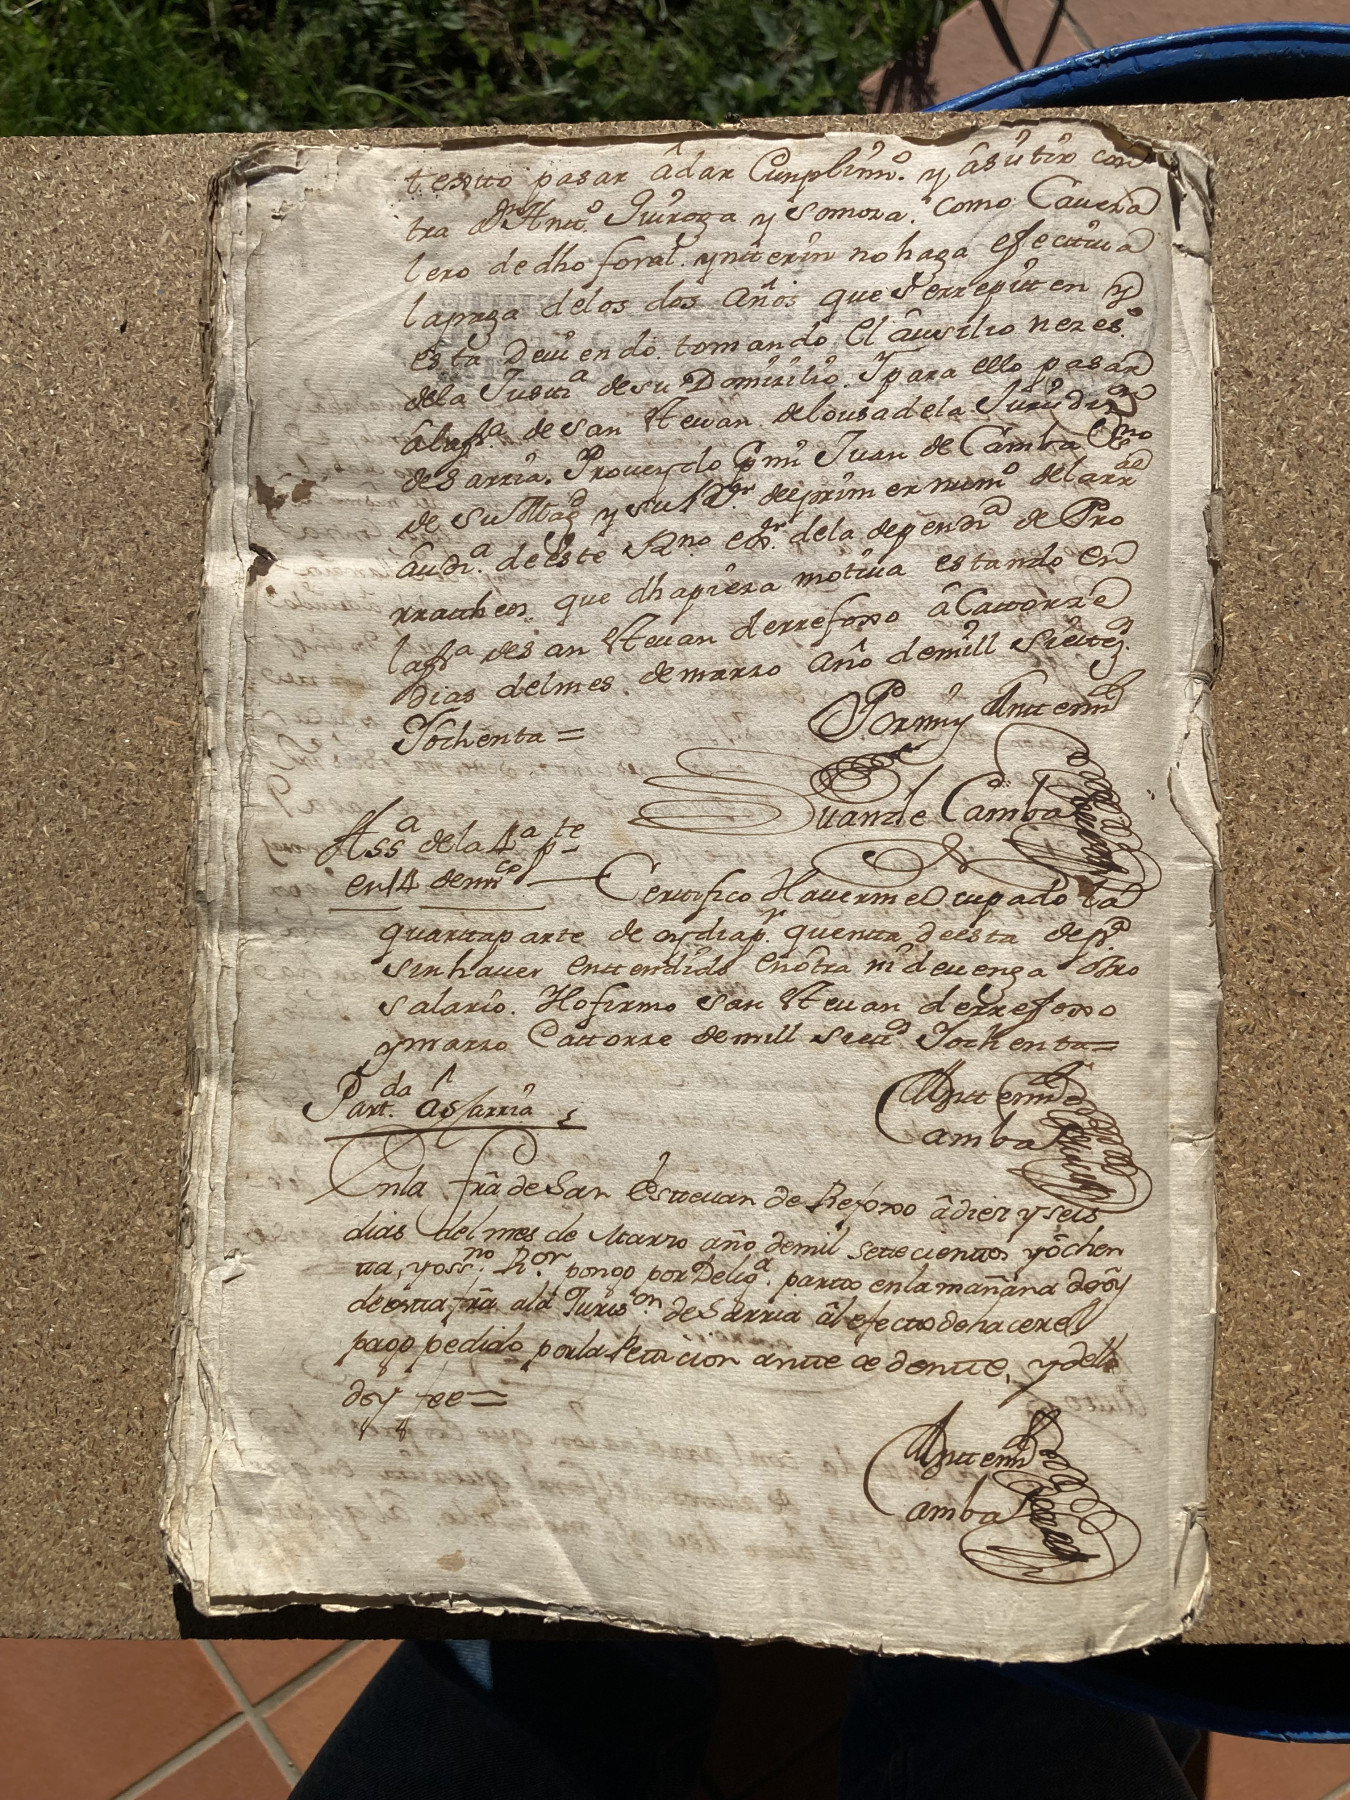 testto pasar â dar Cumplim.º y âsistir con
tra Dⁿ Antt.º Quiroga y Somoza. como Caveza
lero de dho foral. ynitterin no haga efectiva
la paga delos dos años que serrepitten y
esta deviendo. tomando El âusilio nezes.º
dela Justt.ª de su Domizilio. Y para ello pasar
âla fr.ª de san Stevan de lousa dela Jurisdiz.on
de Sarria. Proveydo p.r mi Juan de Camba Ess.no
de su Mag.d y su Rr. del primer num.º dela rr.al
âudi.ª de este Rn.º en. dela dependi.ª de Pro
rratheos. que dha pieza motiva estando En
la fr.ª de san Stevan de rrefoxo â Cattorze
Dias del mes. de marzo año de mill Siettez.
Yochenta =
Por my Antte mi
Juan de Camba
Ass.ª de la 4.ª p.te
en 14 de mzo
Certtifico Haverme Ocupado la
quartta parte de oy dia p.r quentta deesta dep.ª
sin haver enttendido en ôtra ni devenga ôtro
salario. Ho firmo san Stevan de rrefoxo
y marzo Cattorze de mill siett.s Yochenta =
Part.da â Sarria
Antte mi
Camba
Enla frâ de San Esttevan de Refoxo â diez y seis
dias del mes de Marzo año de mil settecienttos yôchen
tta, yo ss.no R.or pongo por Delig.ª parttô en la mañana de oy
de estta frâ ala Juris.on de Sarria âl efectto de hacer el
pago pedido por la Petticion anttecedentte, y de ello
doy fee =
Antte mi
Camba